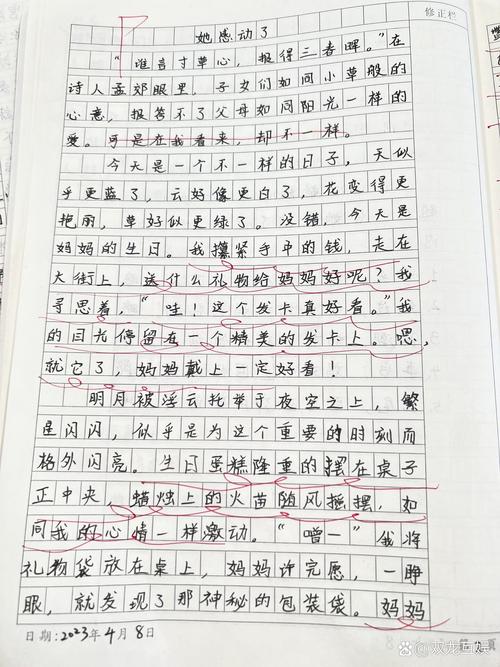 修正栏
她感动了
“谁言寸草心，报得三春晖。”在
诗人孟郊眼里，子女们如同小草般的
心意，报答不了父母如同阳光一样的
爱。可是在我看来，却不一样。
今天是一个不一样的日子，天似
乎更蓝了，云好像更白了，花变得更
艳丽，草好似更绿了。没错，今天是
妈妈的生日。我攥紧手中的钱，走在
大街上，送什么礼物给妈妈好呢？我
寻思着，“哇！这个发卡真好看。”我
的目光停留在一个精美的发卡上。嗯，
就它了，妈妈戴上一定好看！
明月被浮云托举于夜空之上，繁
星闪闪，似乎是为这个重要的时刻而
格外闪亮。生日蛋糕隆重的摆在桌子
正中央，蜡烛上的火苗随风摇摆，如
同我的心情一样激动。“噌一”我将
礼物袋放在桌上，妈妈许完愿，一睁
眼，就发现了那神秘的包装袋。妈妈
日期：2023年4月8日
双龙百娱